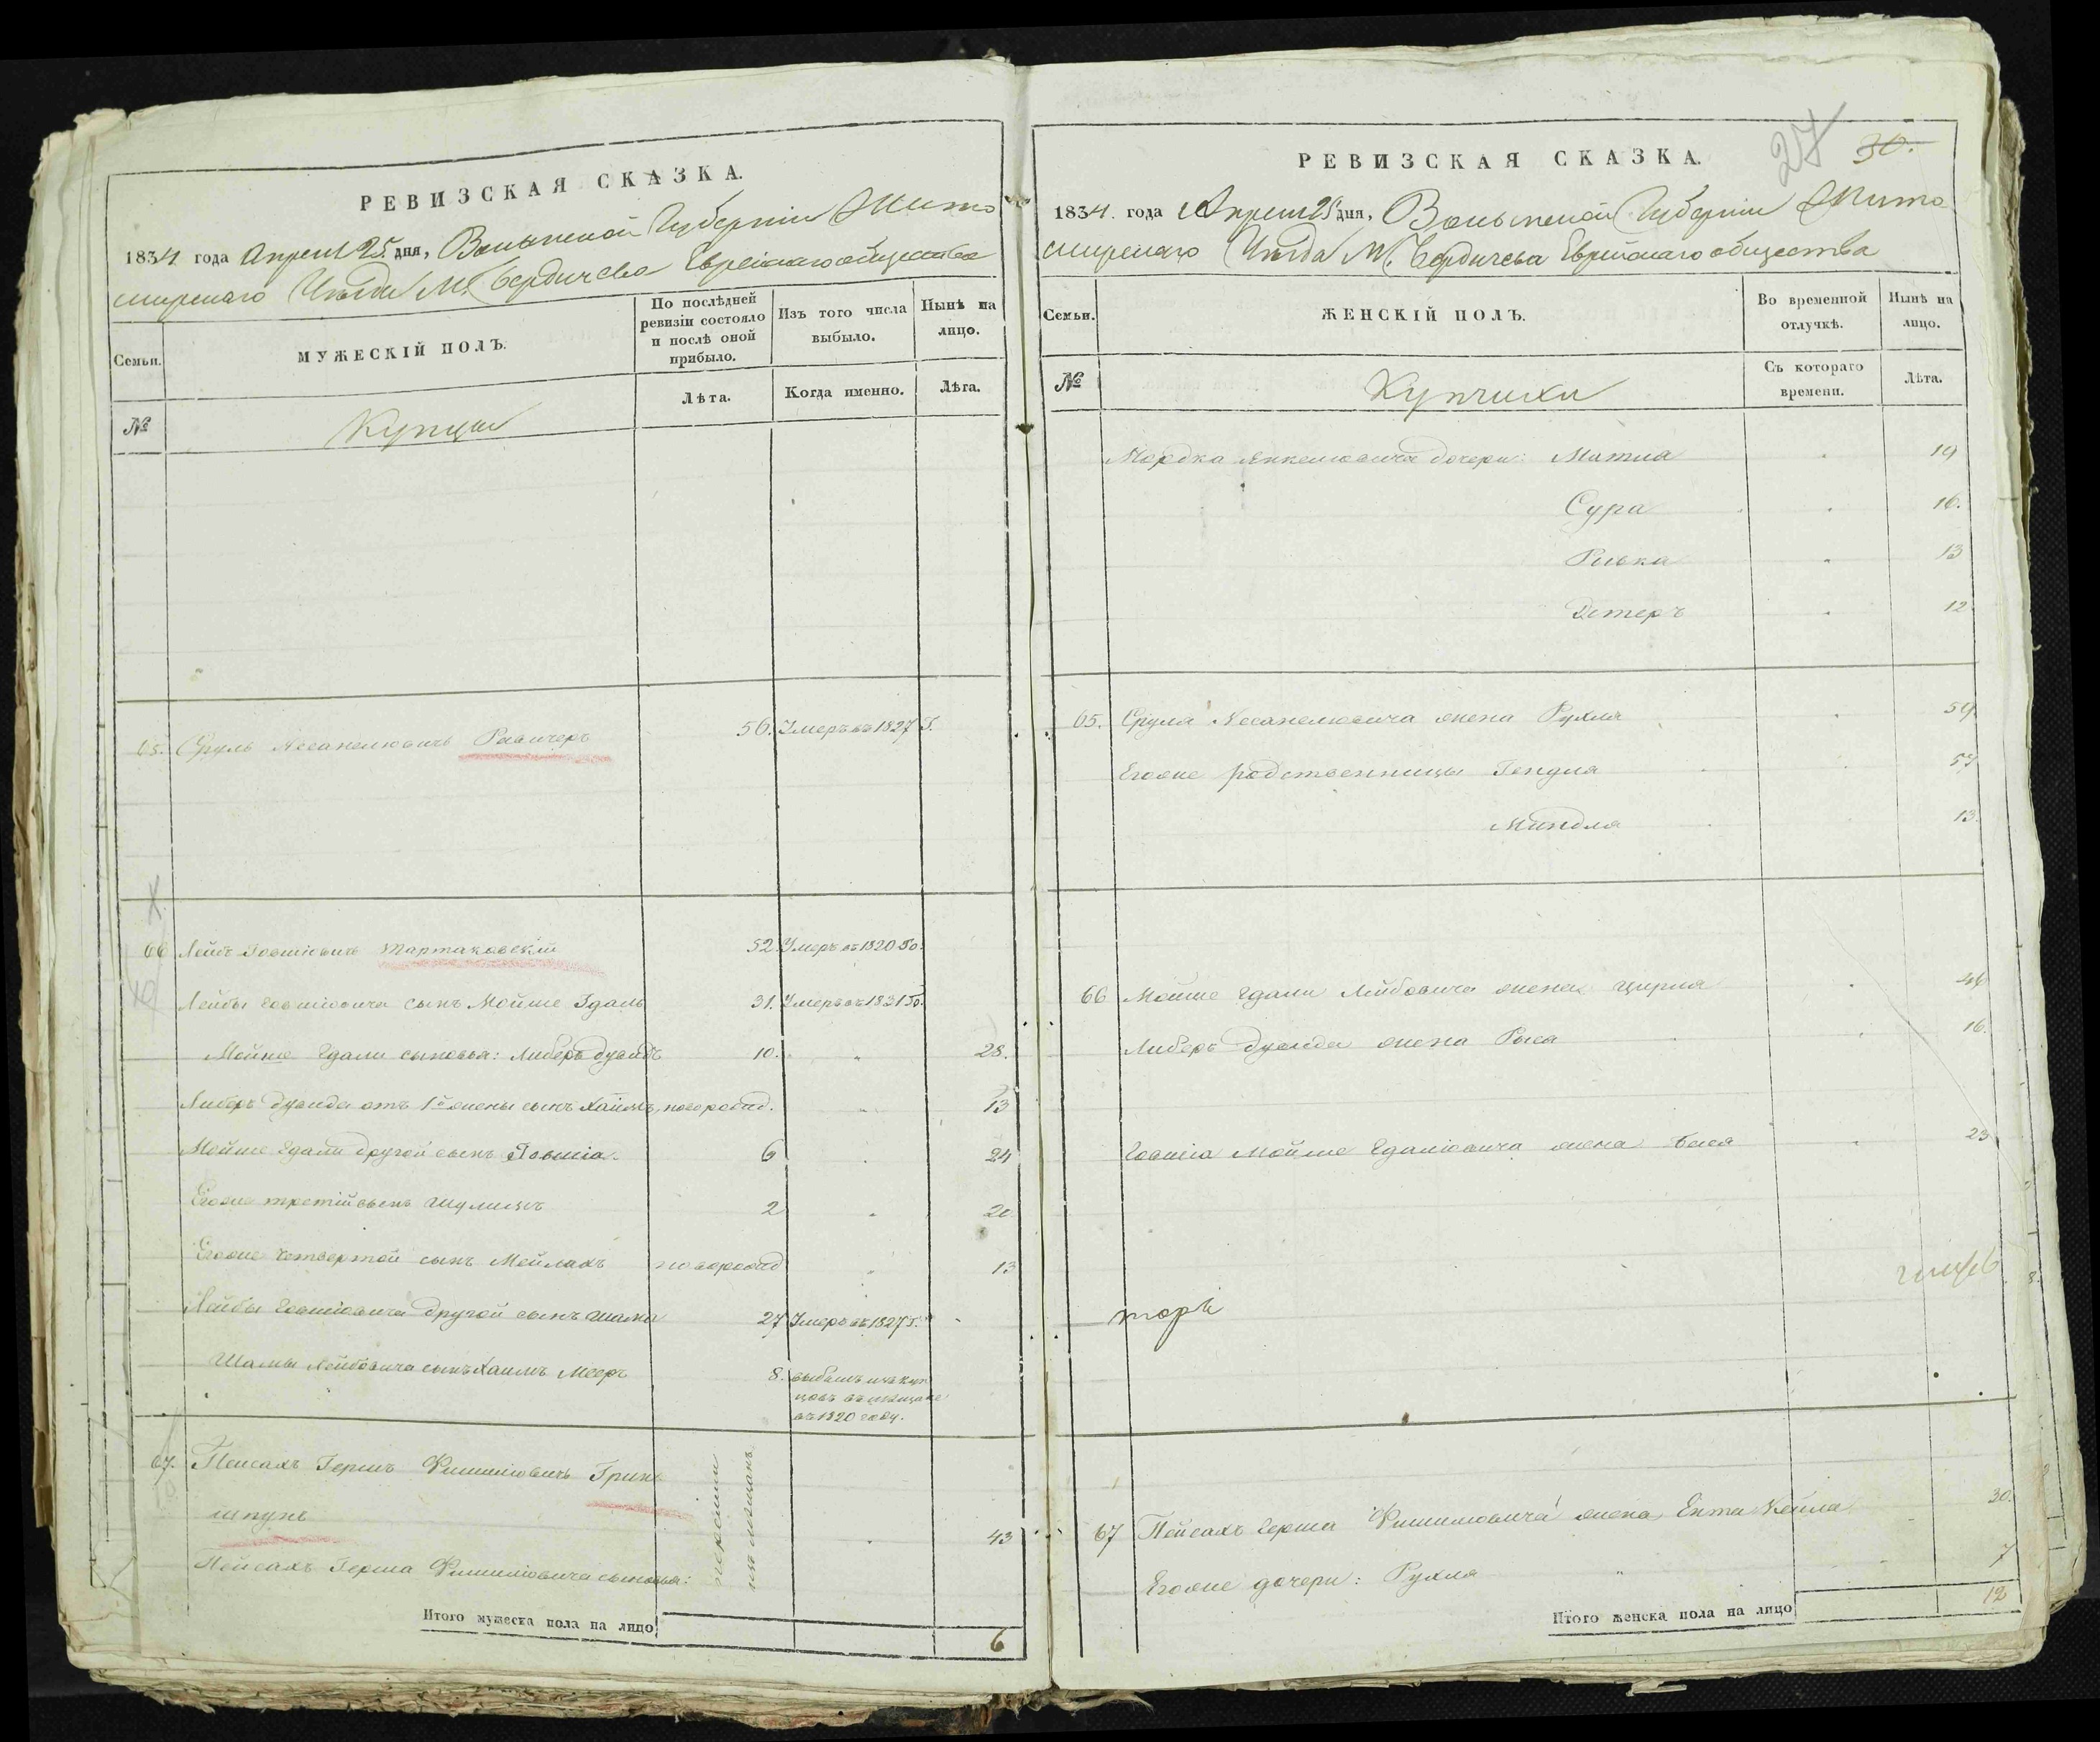 РЕВИЗСКАЯ СКАЗКА.
1834. года Апреля 25. дня, Волынской Губернии Жито
мирскаго Уѣзда М. Бердичева Еврейскаго общества
Семьи.
МУЖЕСКІЙ ПОЛЪ.
По послѣдней ревизіи состояло и послѣ оной прибыло.
Изъ того числа выбыло.
Нынѣ на лицо.
№
Купцы
Лѣта.
Когда именно.
Лѣта.
65. Сруль Несанелювичъ Равичеръ 56. Умеръ въ 1827 Г.
66 Лейба Іовшіовичъ Тартаковскій 52. Умеръ въ 1820 Го.
Лейбы Іовшіовича сынъ Мойше Гдаль 31. Умеръ въ 1831 Го.
Мойше Гдали сыновья: Либеръ Дувидъ 10. 28.
Либеръ Дувида отъ 1й жены сынъ Хаимъ, новорожд. 13
Мойше Гдали другой сынъ Іовшіа. 6 24
Егоже третій сынъ Шулимъ 2 20
Егоже четвертой сынъ Меймахъ новорожд 13
Лейбы Іовшіовича другой сынъ Шама 27 Умеръ въ 1827 г.
Шамы Лейбовича сынъ Хаимъ Мееръ 8. выбылъ изъ куп
цовъ въ мещане
въ 1820 году.
67. Пейсахъ Гершъ Фишелювичъ Грин
шпунъ 43
изъ мещанъ
Пейсахъ Герша Фишелювича сыновья:
Итого мужеска пола на лицо 6
РЕВИЗСКАЯ СКАЗКА.
27
30.
1834. года Апреля 25 дня, Волынской Губернии Жито
мирскаго Уѣзда М. Бердичева Еврейскаго общества
Семьи.
ЖЕНСКІЙ ПОЛЪ.
Во временной отлучкѣ.
Нынѣ на лицо.
№
Купчихи
Съ котораго времени.
Лѣта.
Мордка Янкелювича дочери: Матла 19
Сура 16.
Ривка 13
Эстеръ 12
65. Сруля Несанелювича жена Рухля 59
Егоже родственницы Гендля 57
Миндля 13.
66 Мойше Гдали Лейбовича жена Цирля 46
Либеръ Дувида жена Рыся 16.
Іовшіа Мойше Гдалювича жена Бася 23
67 Пейсахъ Герша Фишелювича жена Ента Кейла 30.
Егоже дочери: Рухля 7
Итого женска пола на лицо 12